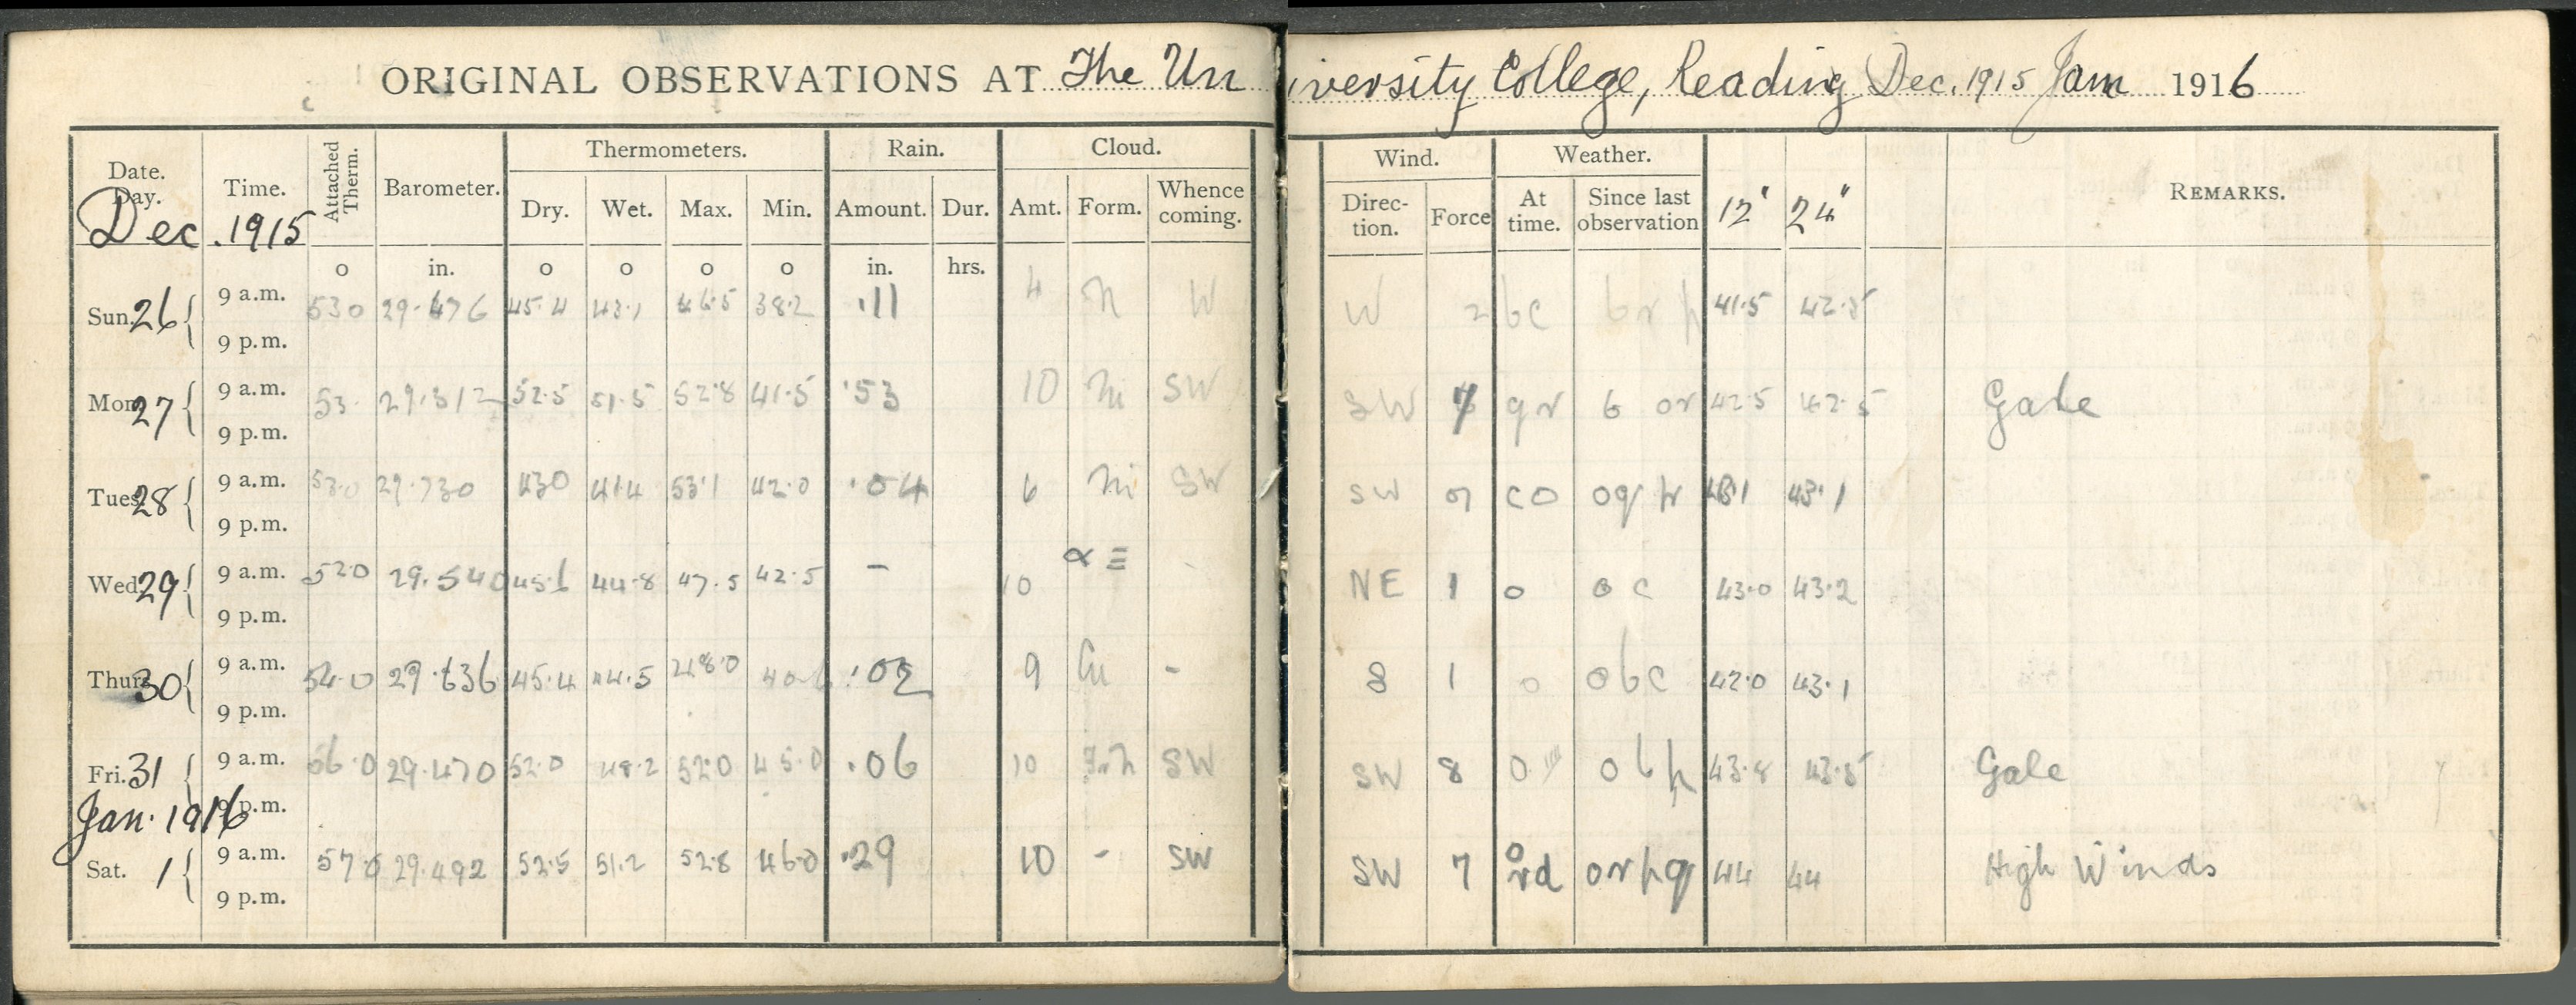 ORIGINAL OBSERVATIONS AT The University College, Reading Dec. 1915 Jan 1916
Date. Day. Time. Attached Therm. Barometer. Thermometers. Rain. Cloud. Wind. Weather. 12" 24" REMARKS.
Dry. Wet. Max. Min. Amount. Dur. Amt. Form. Whence coming. Direction. Force At time. Since last observation
Dec. 1915
o in. o o o o in. hrs.
Sun. 26 9 a.m. 530 29.476 45.4 43.1 46.5 38.2 .11 4 N W W 2 bc 41.5 42.5
9 p.m.
Mon 27 9 a.m. 53. 29.312 52.5 51.5 52.8 41.5 .53 10 Ni SW SW 7 qr 6 or 42.5 42.5 Gale
9 p.m.
Tues 28 9 a.m. 53.0 29.730 430 41.4 53.1 42.0 .04 6 Ni SW SW co oq p 43.1 43.1
9 p.m.
Wed 29 9 a.m. 520 29.540 45.6 44.8 47.5 42.5 - 10 ∝ ≡ NE 1 o o c 43.0 43.2
9 p.m.
Thurs 30 9 a.m. 54.0 29.636 45.4 44.5 48.0 40.6 .02 9 Cu - S 1 o obc 42.0 43.1
9 p.m.
Fri. 31 9 a.m. 56.0 29.470 52.0 48.2 52.0 45.0 .06 10 SW SW 8 o obp 43.8 43.5 Gale
9 p.m.
Jan. 1916
Sat. 1 9 a.m. 57.0 29.492 52.5 51.2 52.8 46.0 .29 10 - SW SW 7 o rd orpq 44 44 High Winds
9 p.m.